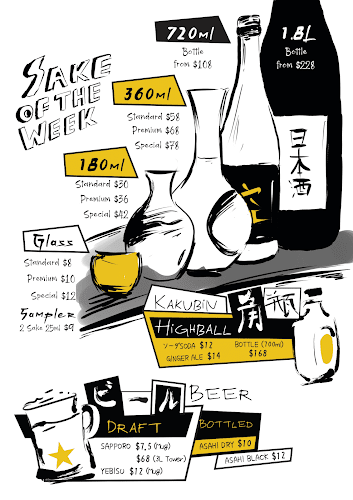 SAKE
OF THE
WEEK
720ml
Bottle
from $108
1.8L
Bottle
from $228
360ml
Standard $58
Premium $68
Special $78
180ml
Standard $30
Premium $36
Special $42
日本酒
Glass
Standard $8
Premium $10
Special $12
Sampler
2 Sake 25ml $9
KAKUBIN 角瓶
HIGHBALL
ソーダSODA $12
GINGER ALE $14
BOTTLE (700ml)
$168
ビール BEER
DRAFT
SAPPORO $7,5 (Mug)
$68 (3L Tower)
YEBISU $12 (Mug)
BOTTLED
ASAHI DRY $10
ASAHI BLACK $12